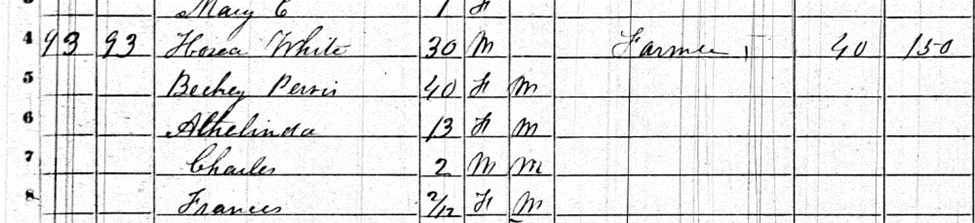 Mary C 1 F
4 93 93 Hosea White 30 M Farmer 40 150
5 Beckey Perris 40 F M
6 Athelinda 13 F M
7 Charles 2 M M
8 Frances 2/12 F M